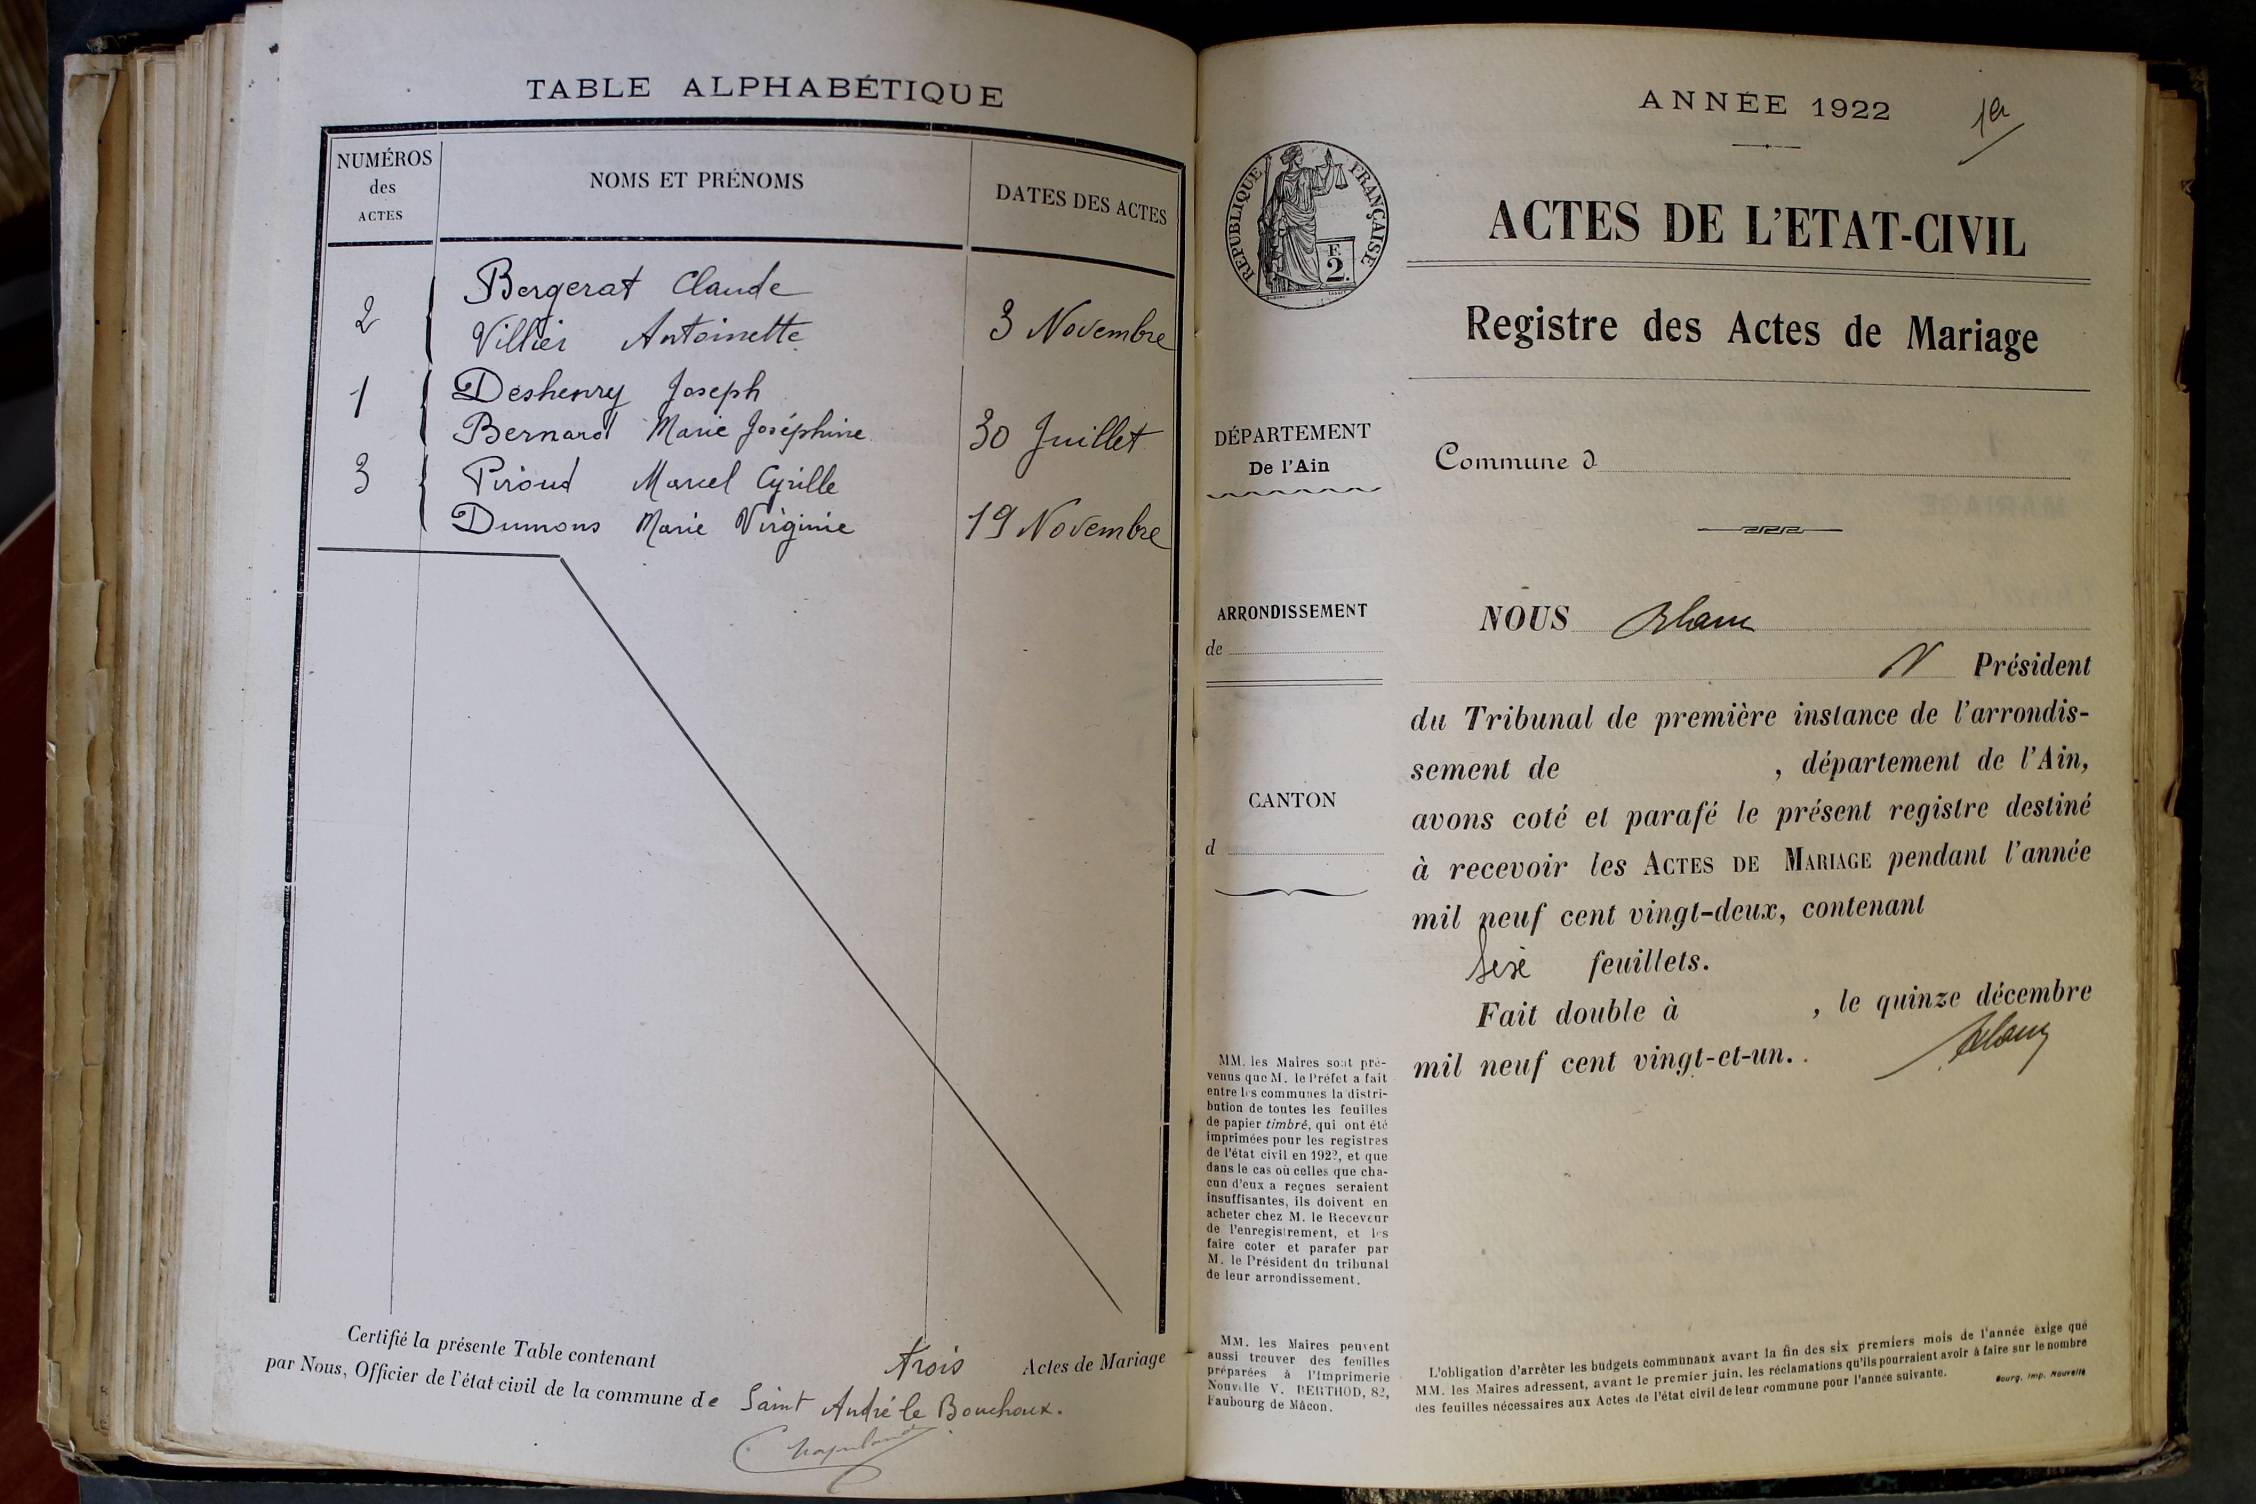 TABLE ALPHABÉTIQUE
NUMÉROS des ACTES
NOMS ET PRÉNOMS
DATES DES ACTES
2
Bergerat Claude
Villier Antoinette
3 Novembre
1
Deshenry Joseph
Bernard Marie Joséphine
30 Juillet
3
Piroud Marcel Cyrille
Dumons Marie Virginie
19 Novembre
Certifié la présente Table contenant trois Actes de Mariage
par Nous, Officier de l'état civil de la commune de Saint André le Bouchoux.
ANNÉE 1922
1er
RÉPUBLIQUE FRANÇAISE
F.
2.
ACTES DE L'ETAT-CIVIL
Registre des Actes de Mariage
DÉPARTEMENT
De l'Ain
Commune d
ARRONDISSEMENT
de
CANTON
d
NOUS Blanc
V Président
du Tribunal de première instance de l'arrondis-
sement de , département de l'Ain,
avons coté et parafé le présent registre destiné
à recevoir les ACTES DE MARIAGE pendant l'année
mil neuf cent vingt-deux, contenant
feuillets.
Fait double à , le quinze décembre
mil neuf cent vingt-et-un.
Blanc
MM. les Maires sont pré-
venus que M. le Préfet a fait
entre les communes la distri-
bution de toutes les feuilles
de papier timbré, qui ont été
imprimées pour les registres
de l'état civil en 1922, et que
dans le cas où celles que cha-
cun d'eux a reçues seraient
insuffisantes, ils doivent en
acheter chez M. le Receveur
de l'enregistrement, et les
faire coter et parafer par
M. le Président du tribunal
de leur arrondissement.
MM. les Maires peuvent
aussi trouver des feuilles
préparées à l'Imprimerie
Nouvelle V. BERTHOD, 82,
Faubourg de Mâcon.
L'obligation d'arrêter les budgets communaux avant la fin des six premiers mois de l'année exige que
MM. les Maires adressent, avant le premier juin, les réclamations qu'ils pourraient avoir à faire sur le nombre
des feuilles nécessaires aux Actes de l'état civil de leur commune pour l'année suivante.
Bourg, Imp. Nouvelle